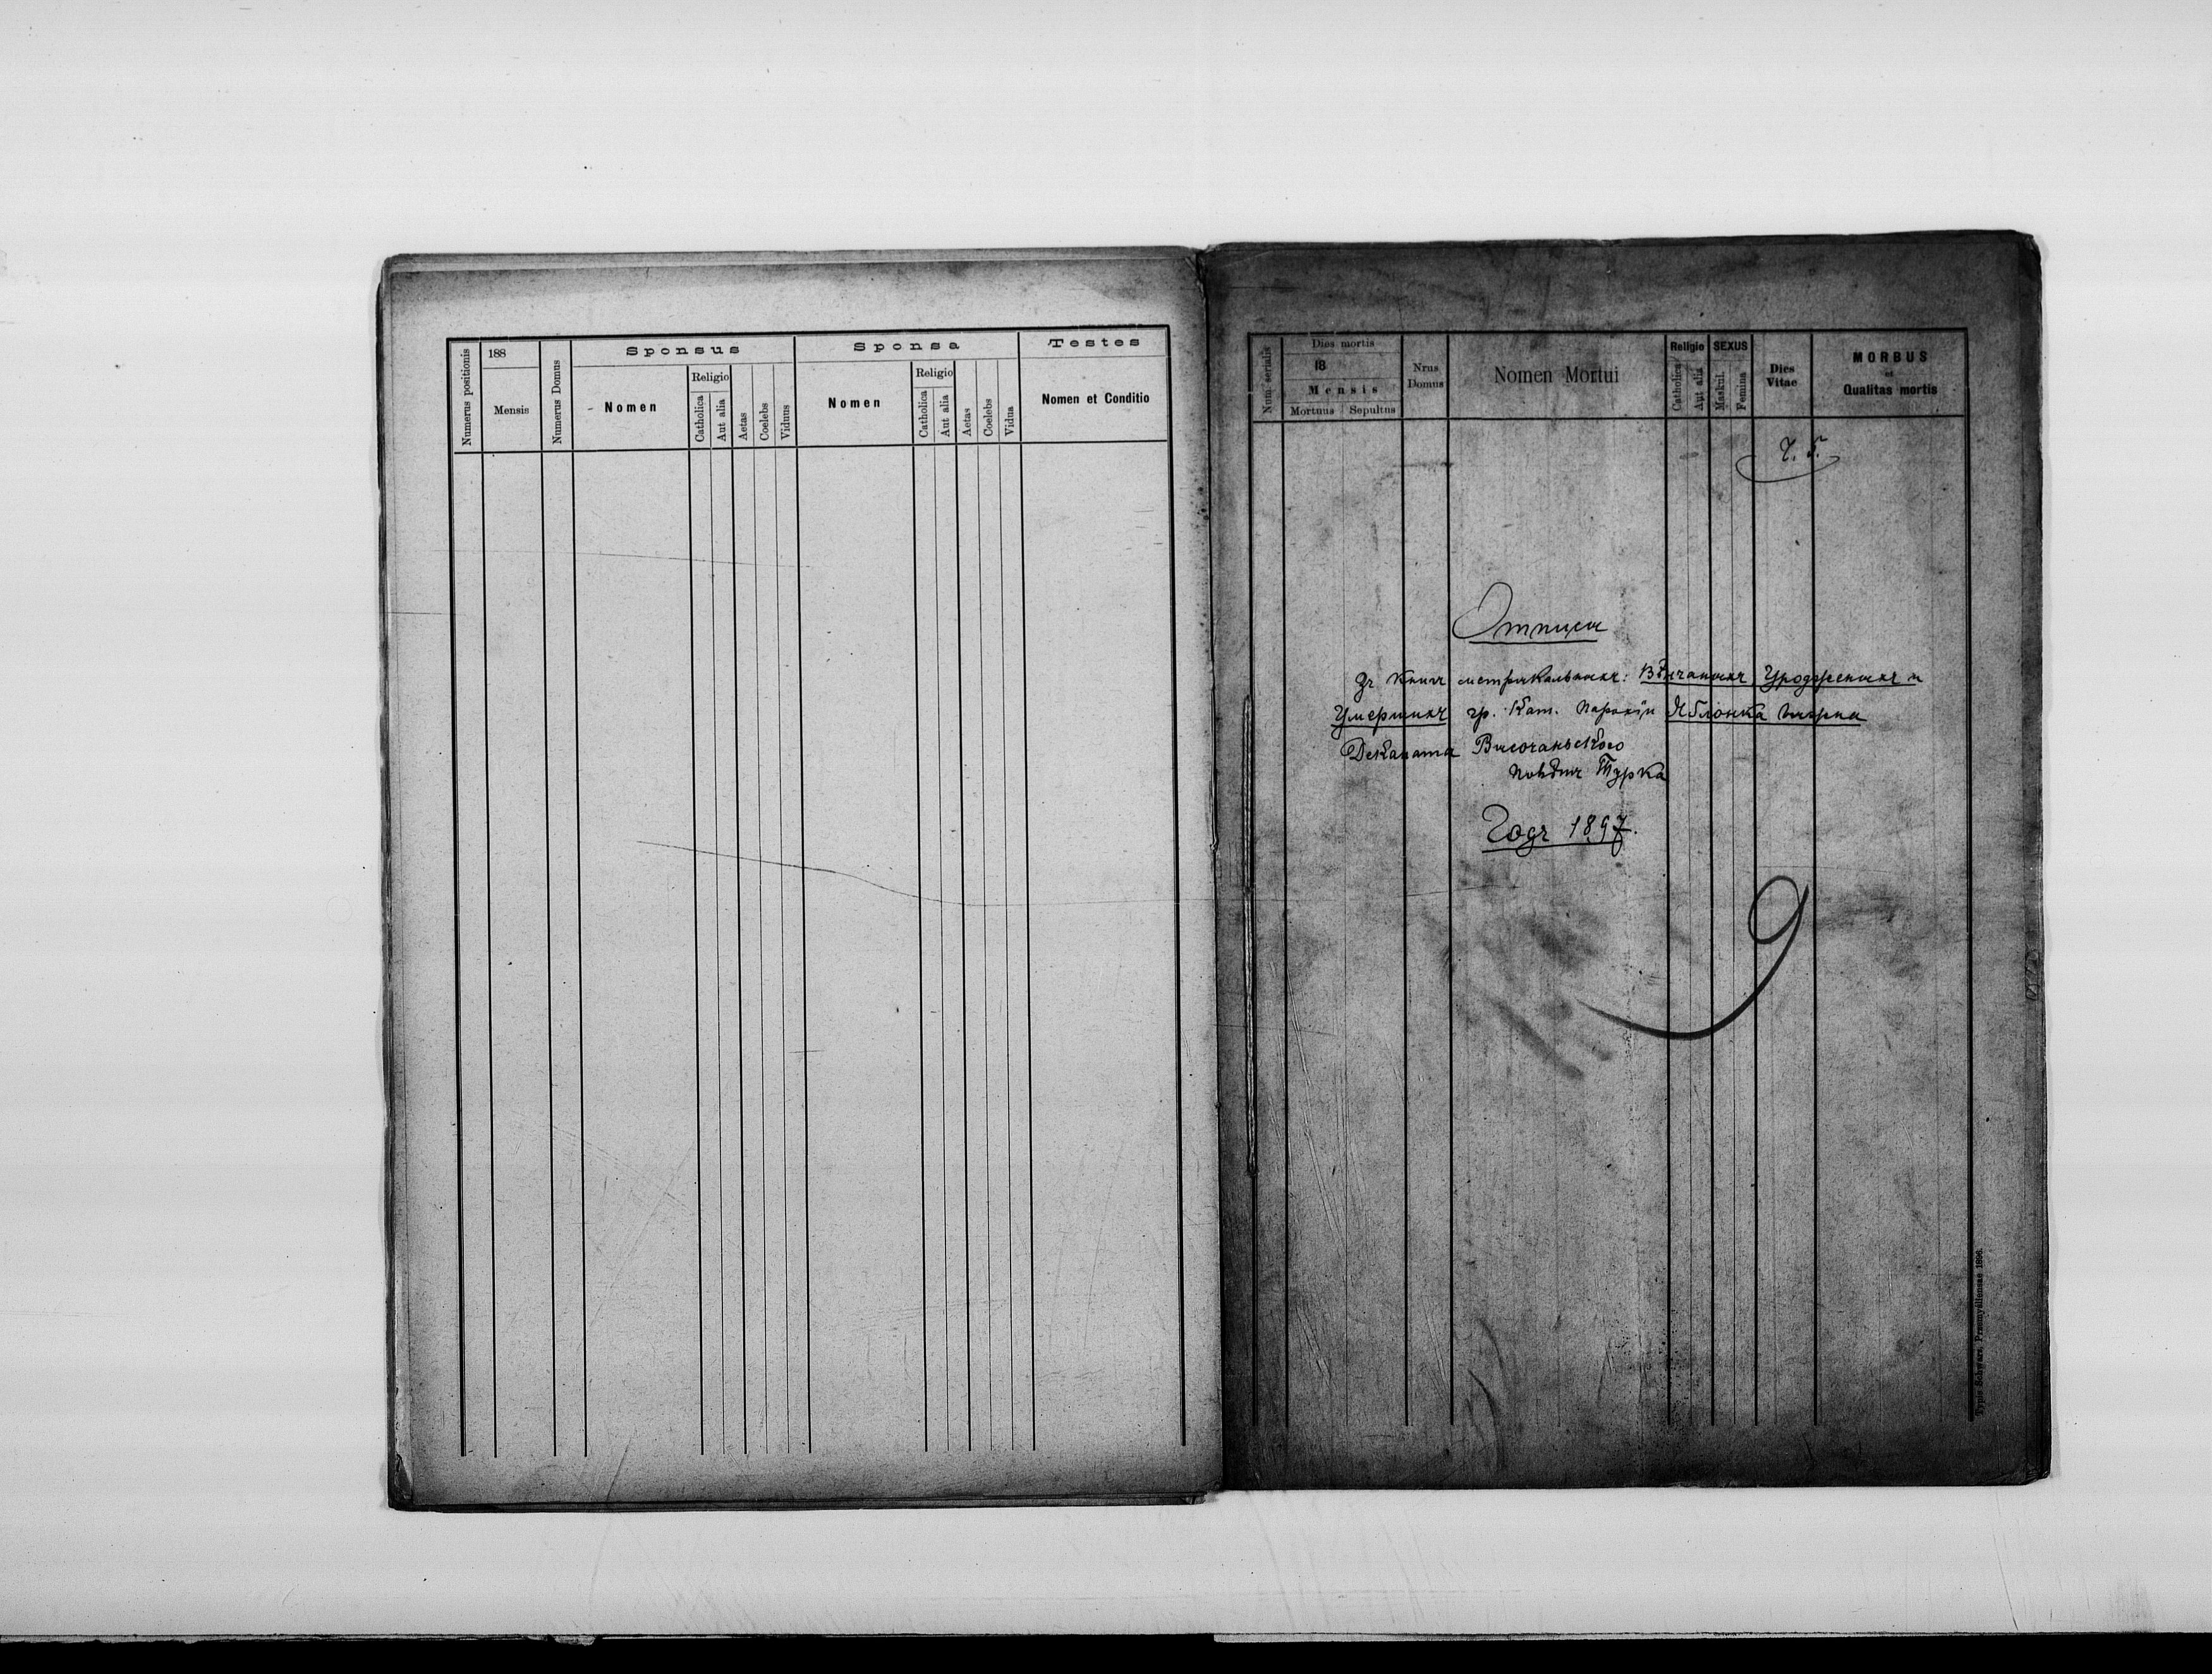 Numerus positionis
188
Mensis
Numerus Domus
Sponsus
Nomen
Religio
Catholica
Aut alia
Aetas
Coelebs
Viduus
Sponsa
Nomen
Religio
Catholica
Aut alia
Aetas
Coelebs
Vidua
Testes
Nomen et Conditio
Num. serialis
Dies mortis
18
Mensis
Mortuus
Sepultus
Nrus
Domus
Nomen Mortui
Religio
Catholica
Aut alia
SEXUS
Maskul.
Femina
Dies
Vitae
MORBUS
et
Qualitas mortis
Ч. 5.
Отписи
зъ Книгъ метрикальныхъ: Вѣнчаныхъ Урожденыхъ и
Умершихъ гр. кат. парохіи Яблонка
Деканата Височаньского
Турка
Годъ 1897.
9
Typis Schwarz, Przemysliensae 1896.